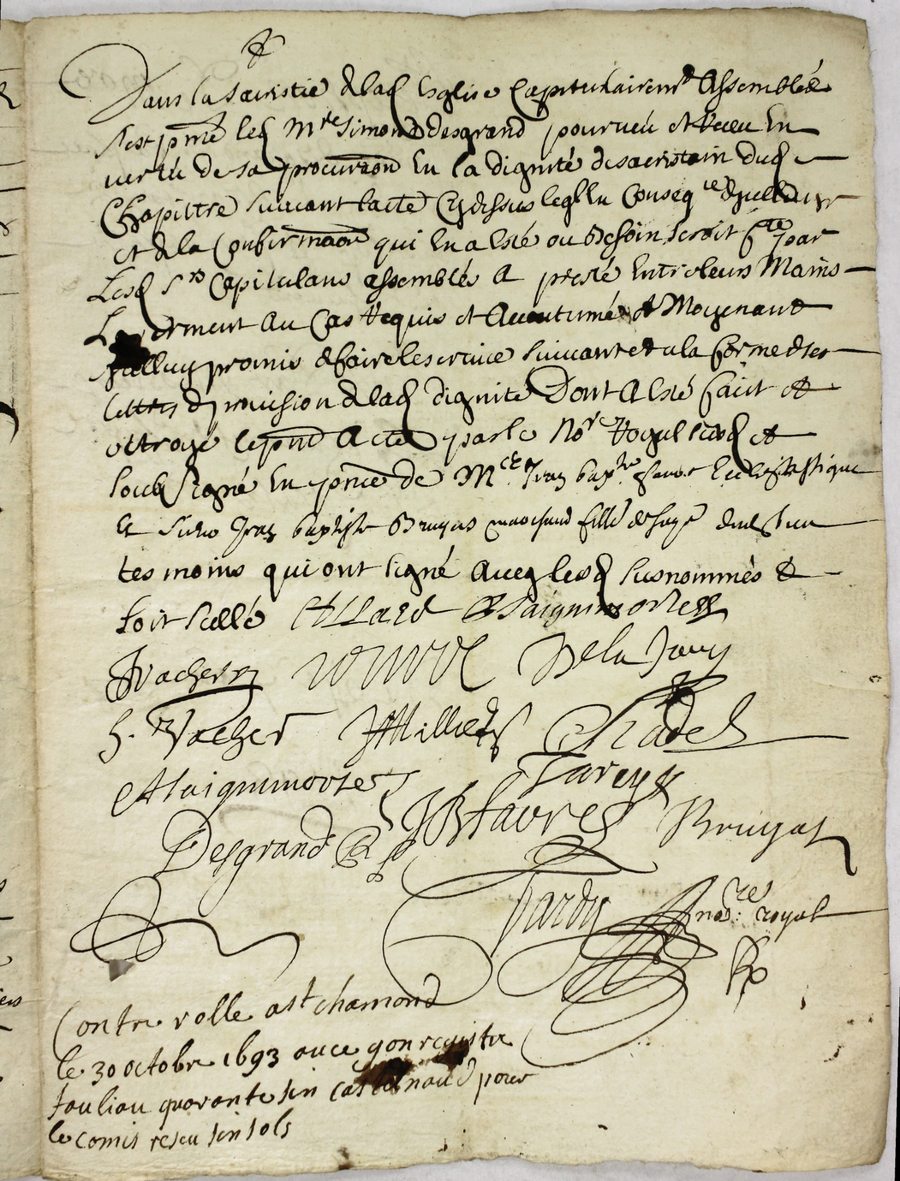 Dans la sacristie de lad Eglise Capitulairemt Assemblés
s'est pnté led Mre Simond desgrand pourveu et Receu En
vertu de sa procuraon En la dignité de sacristain dud
Chapittre suivant lacte Cy dessus leql En Conseqce
et de la Confirmaon qui En a Esté ou Besoin seroit fte par
Lesd Srs Capitulans assemblés A presté Entre leurs Mains
serment Au Cas Requis et Accoutumé Et Moyenant
promis de faire le service suivant et a la forme des
lettres de provision de lad dignité Dont A Esté faict et
ottroyé le pnt Acte par le Nore Royal et
soubsigné En pnce de Mre Jean Baptte favre Ecclesiastique
et sieur Jean baptiste Bruyas marchand de soye
tesmoins qui ont signé avecq lesd susnommés &
soit scellé Allard Chaignimorte
Vacher De la Javy
Vacher JMilliet Chadel
Alaignimorte Tareyx
Desgrand JBfavre Bruyas
Hardy nore royal
Contre rolle a st chamond
le 30 octobre 1693 au registre
fouliau quarante sin castelnaud pour
le comis reseu sin sols